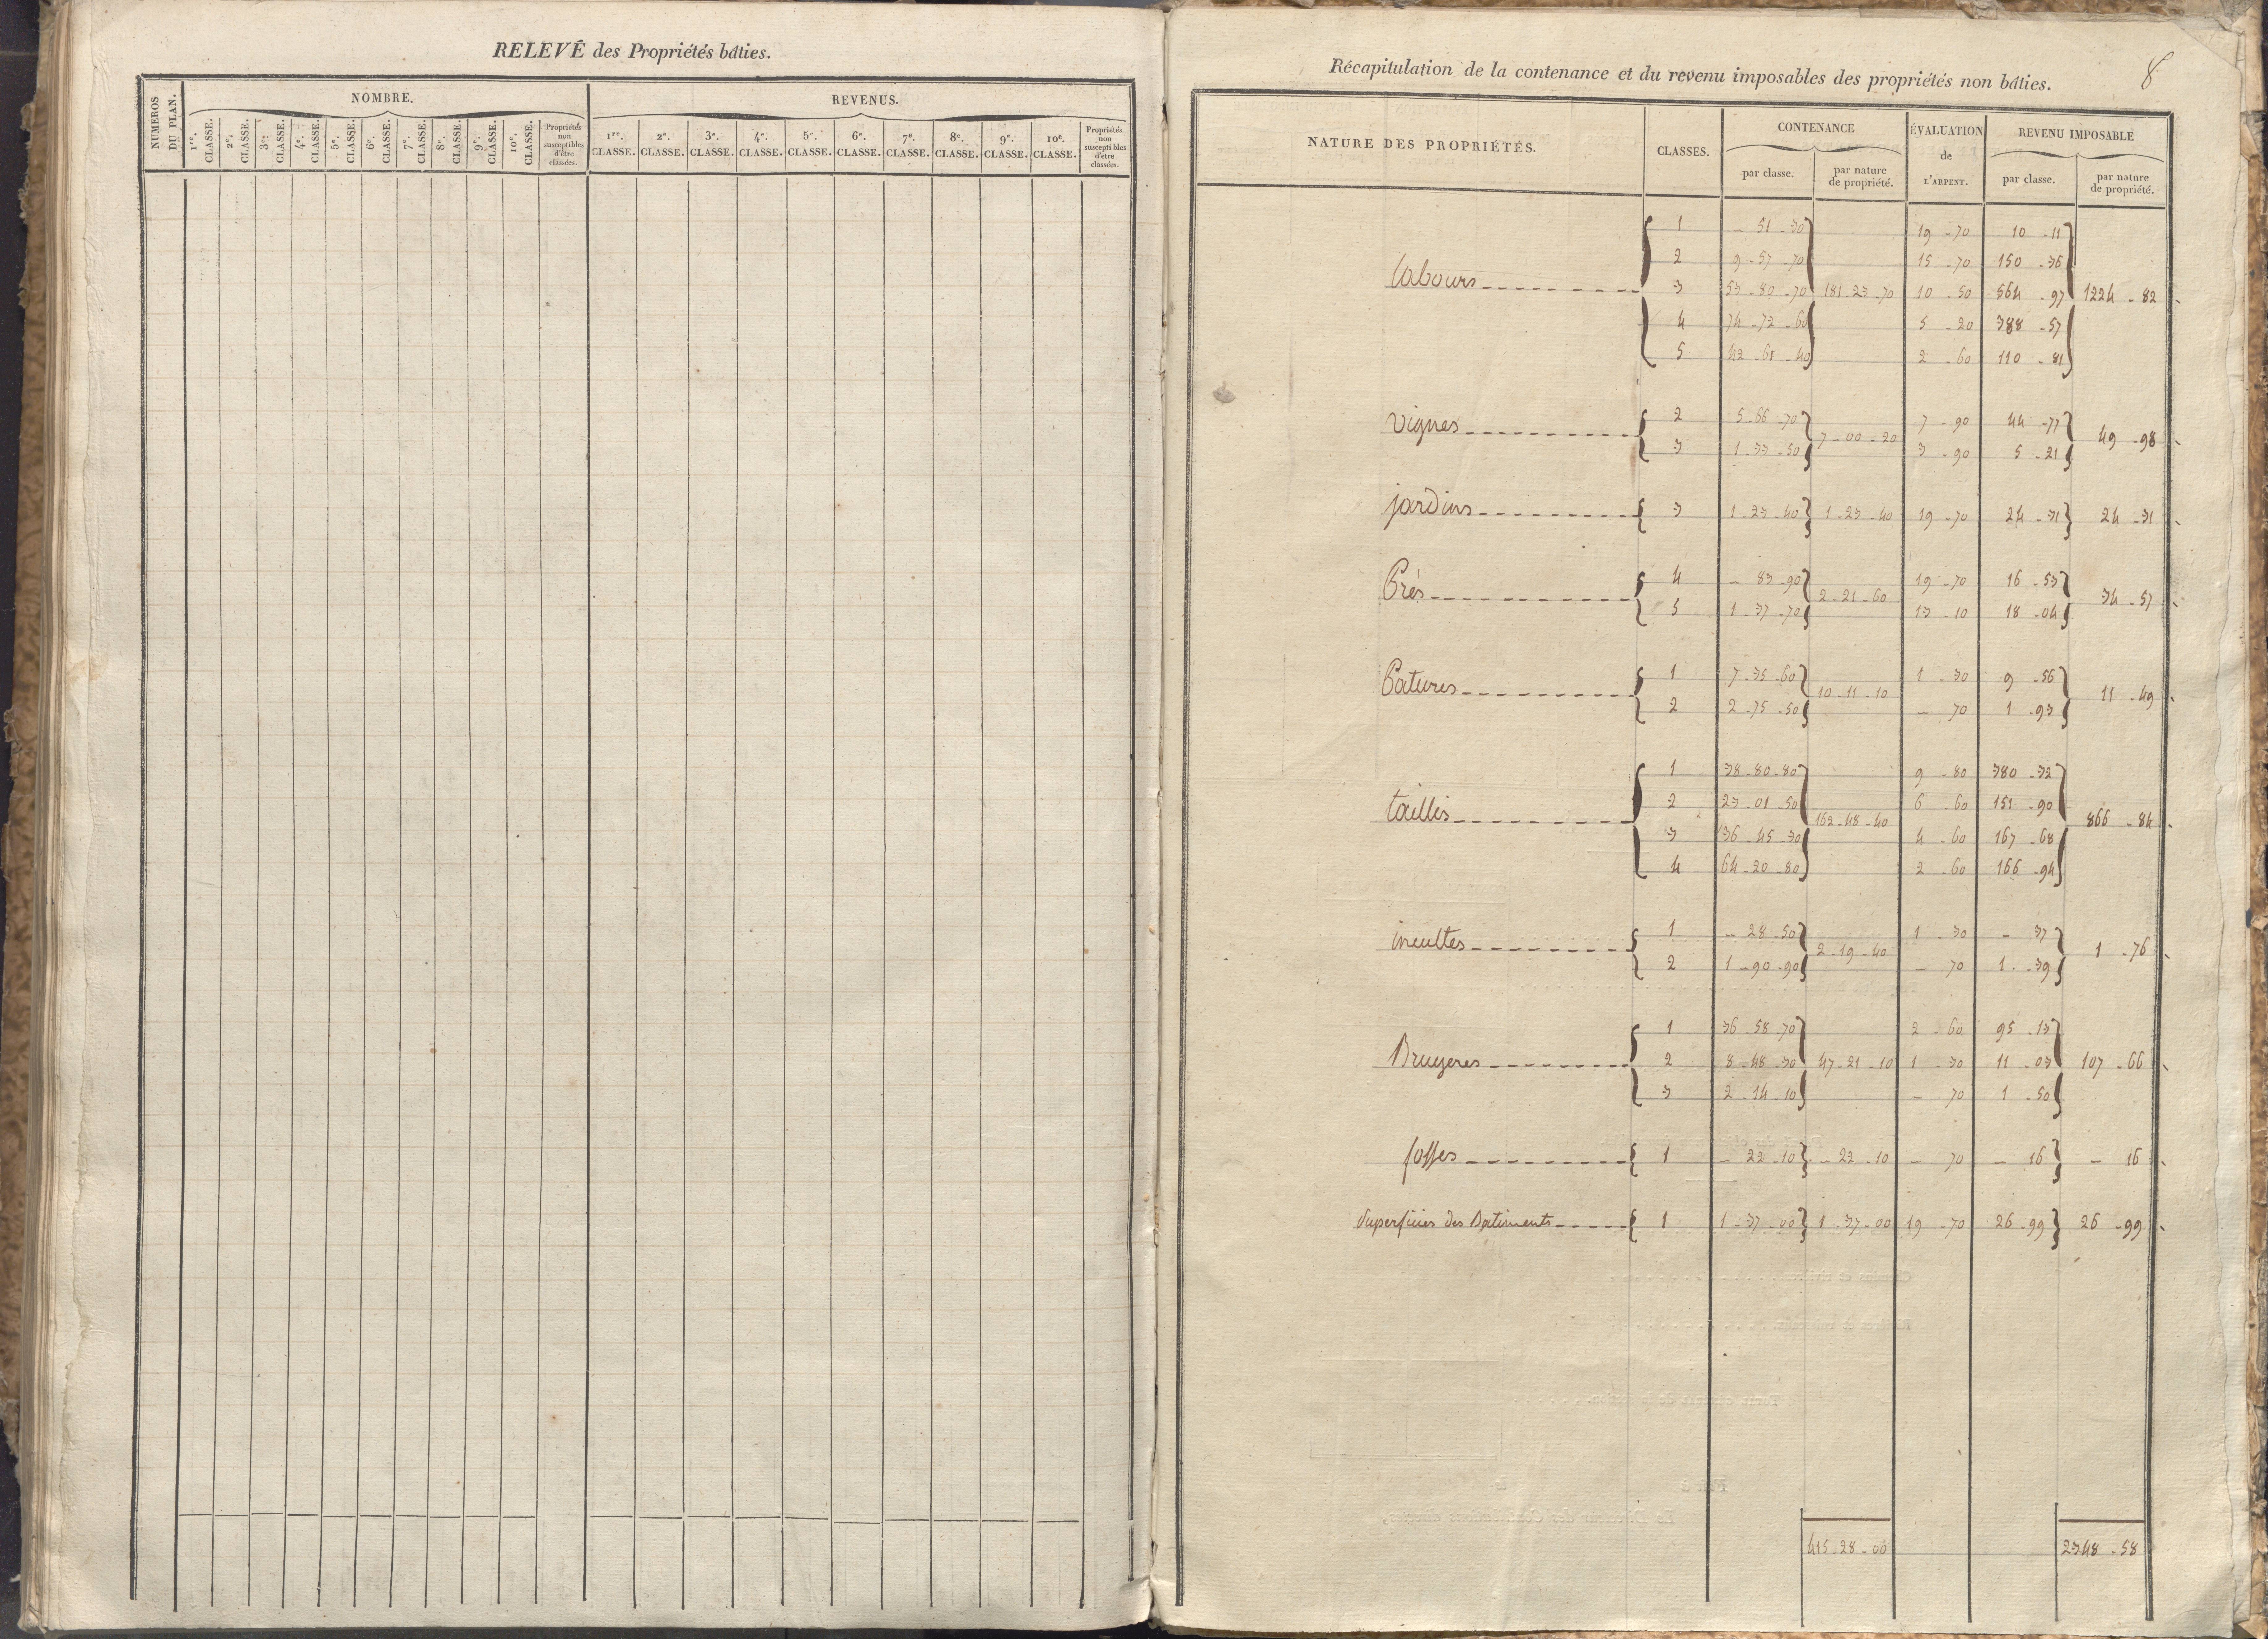 RELEVÉ des Propriétés bâties.
NUMEROS DU PLAN.
NOMBRE.
REVENUS.
1re. CLASSE. 2e. CLASSE. 3e. CLASSE. 4e. CLASSE. 5e. CLASSE. 6e. CLASSE. 7e. CLASSE. 8e. CLASSE. 9e. CLASSE. 10e. CLASSE. Propriétés non susceptibles d'être classées.
1re. CLASSE. 2e. CLASSE. 3e. CLASSE. 4e. CLASSE. 5e. CLASSE. 6e. CLASSE. 7e. CLASSE. 8e. CLASSE. 9e. CLASSE. 10e. CLASSE. Propriétés non susceptibles d'être classées.
Récapitulation de la contenance et du revenu imposables des propriétés non bâties.
8
NATURE DES PROPRIÉTÉS. CLASSES. CONTENANCE ÉVALUATION de L'ARPENT. REVENU IMPOSABLE
par classe. par nature de propriété. par classe. par nature de propriété.
1 - 51 - 30 19 - 70 10 - 11
2 9 - 57 - 70 15 - 70 150 - 36
labours 3 53 - 80 - 70 181 - 23 - 70 10 - 50 564 - 97 1224 - 82
4 74 - 72 - 60 5 - 20 388 - 57
5 42 - 61 - 40 2 - 60 110 - 81
vignes 2 5 - 66 - 70 7 - 00 - 20 7 - 90 44 - 77 49 - 98
3 1 - 33 - 50 3 - 90 5 - 21
jardins 3 1 - 23 - 40 1 - 23 - 40 19 - 70 24 - 31 24 - 31
Prés 4 - 83 - 90 2 - 21 - 60 19 - 70 16 - 53 34 - 57
5 1 - 37 - 70 13 - 10 18 - 04
Patures 1 7 - 35 - 60 10 - 11 - 10 1 - 30 9 - 56 11 - 49
2 2 - 75 - 50 - 70 1 - 93
1 38 - 80 - 80 9 - 80 380 - 32
taillis 2 23 - 01 - 50 162 - 48 - 40 6 - 60 151 - 90 866 - 84
3 36 - 45 - 30 4 - 60 167 - 68
4 64 - 20 - 80 2 - 60 166 - 94
incultes 1 - 28 - 50 2 - 19 - 40 1 - 30 - 37 1 - 76
2 1 - 90 - 90 - 70 1 - 39
1 36 - 58 - 70 2 - 60 95 - 13
Bruyeres 2 8 - 48 - 30 47 - 21 - 10 1 - 30 11 - 03 107 - 66
3 2 - 14 - 10 - 70 1 - 50
fosses 1 - 22 - 10 - 22 - 10 - 70 - 16 - 16
Superficies des Batiments 1 1 - 37 - 00 1 - 37 - 00 19 - 70 26 - 99 26 - 99
415 - 28 - 00 2348 - 58